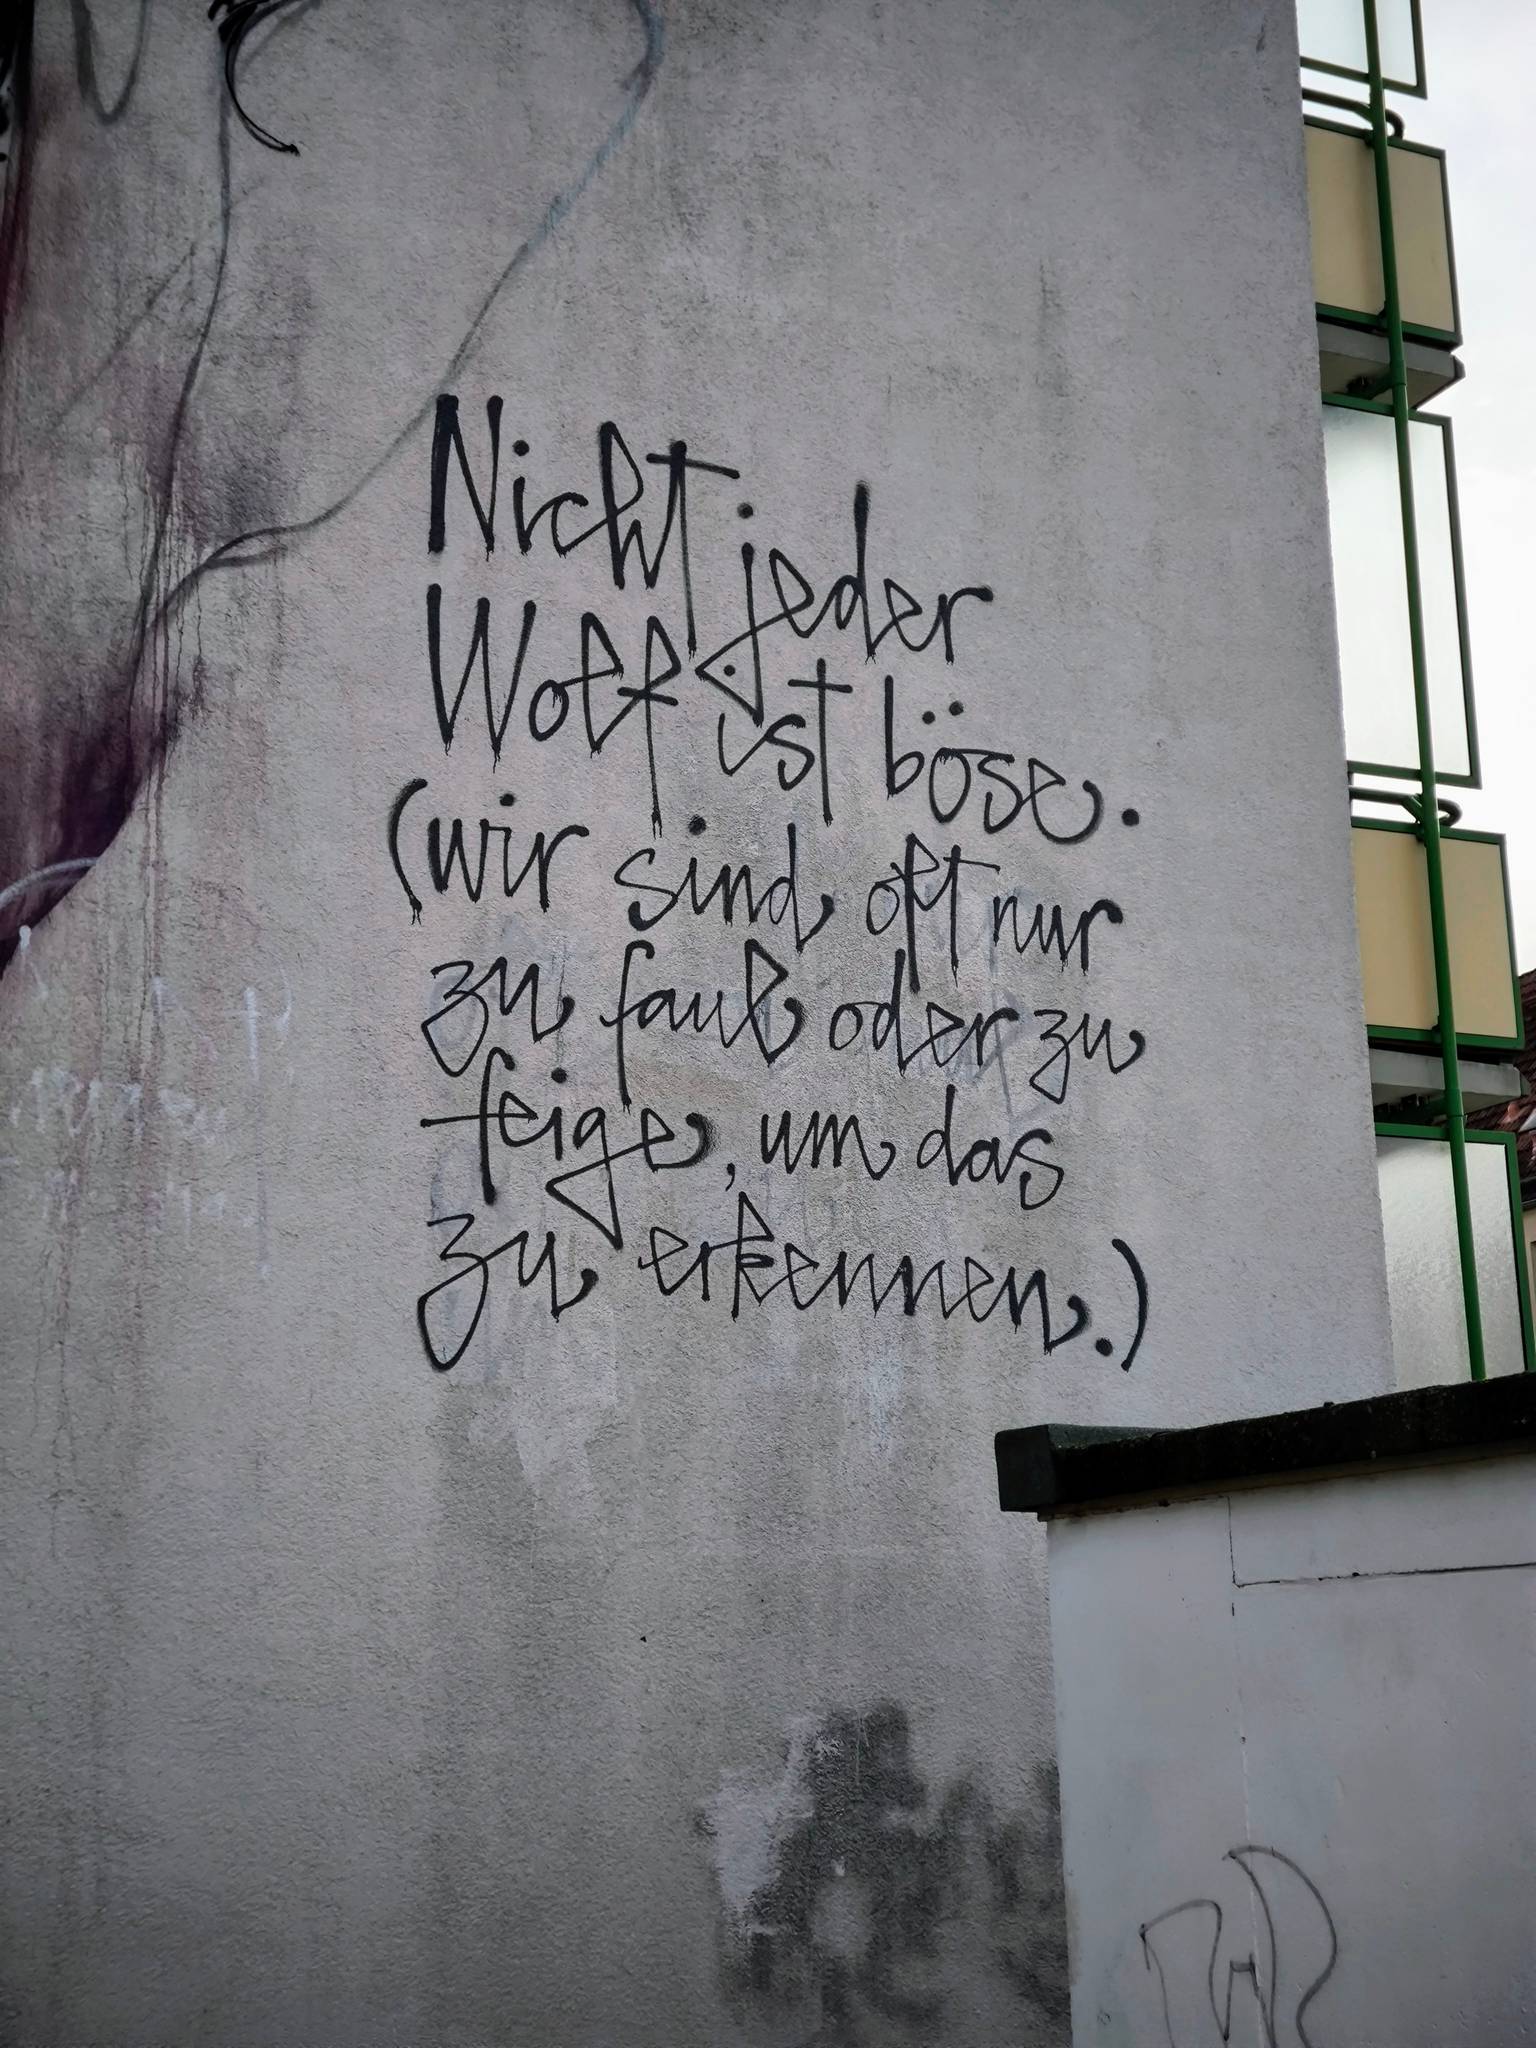 Nicht jeder
Wolf ist böse.
(wir sind oft nur
zu faul oder zu
feige, um das
zu erkennen.)